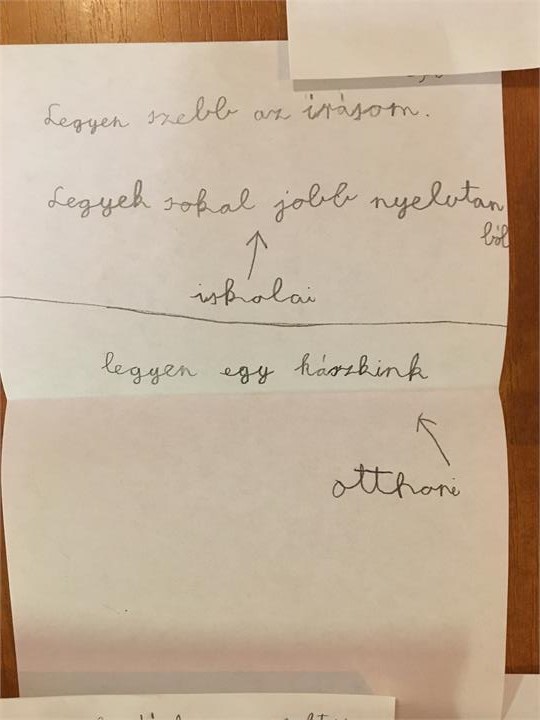 Legyen szebb az irásom.
Legyek sokal jobb nyelvtan
ból
iskolai
legyen egy hászkink
otthoni